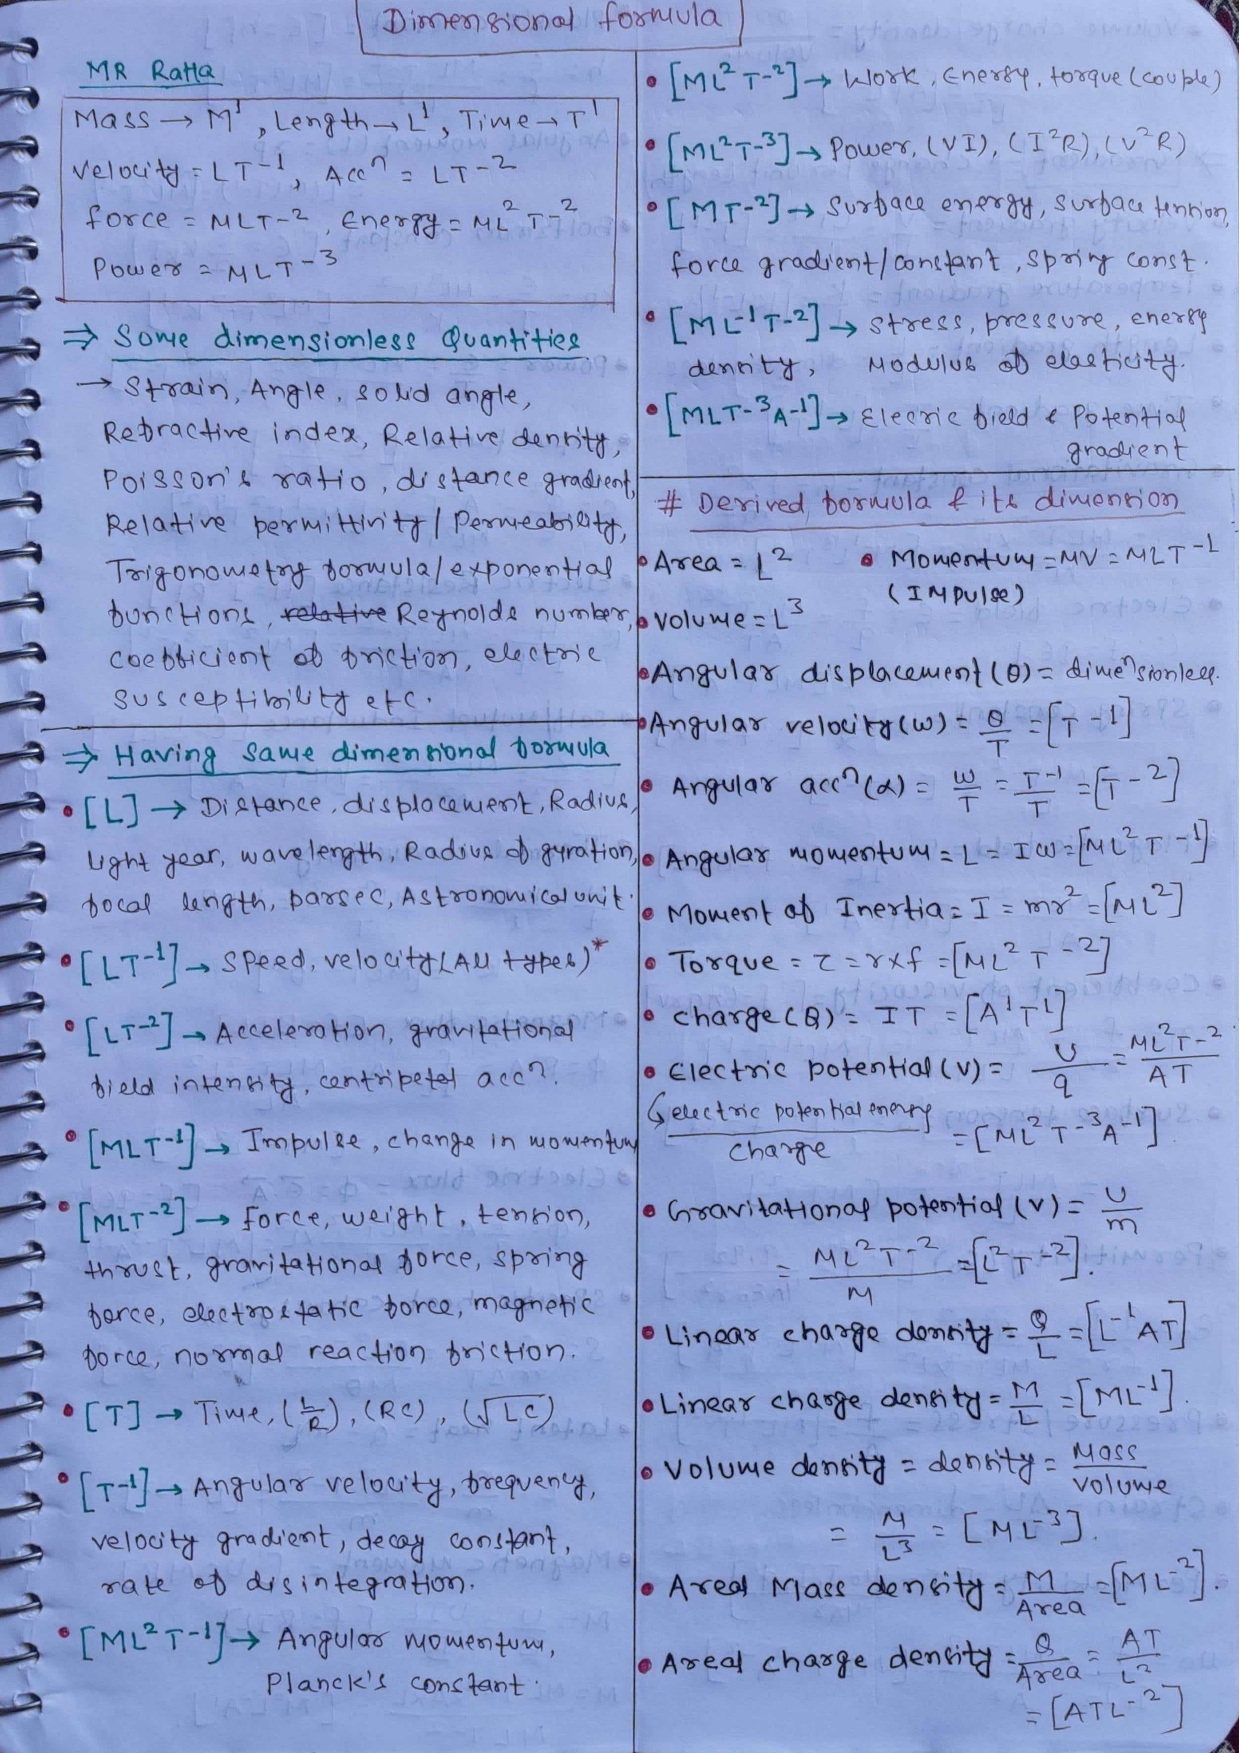 Dimensional formula
MR Ratta
Mass → M¹, Length → L¹, Time → T¹
Velocity = LT⁻¹, Accⁿ = LT⁻²
force = MLT⁻², Energy = ML²T⁻²
Power = MLT⁻³
⇒ Some dimensionless Quantities
→ Strain, Angle, solid angle,
Refractive index, Relative density,
Poisson's ratio, distance gradient,
Relative permittivity/Permeability,
Trigonometry formula/exponential
functions, relative Reynolds number,
coefficient of friction, electric
susceptibility etc.
⇒ Having same dimensional formula
• [L] → Distance, displacement, Radius,
Light year, wavelength, Radius of gyration,
focal length, parsec, Astronomical unit.
• [LT⁻¹] → Speed, velocity (All types)*
• [LT⁻²] → Acceleration, gravitational
field intensity, centripetal accⁿ.
• [MLT⁻¹] → Impulse, change in momentum
• [MLT⁻²] → Force, weight, tension,
thrust, gravitational force, spring
force, electrostatic force, magnetic
force, normal reaction friction.
• [T] → Time, (L/R), (RC), (√LC)
• [T⁻¹] → Angular velocity, frequency,
velocity gradient, decay constant,
rate of disintegration.
• [ML²T⁻¹] → Angular momentum,
Planck's constant.
• [ML²T⁻²] → Work, Energy, torque (couple)
• [ML²T⁻³] → Power, (VI), (I²R), (V²R)
• [MT⁻²] → Surface energy, surface tension,
force gradient/constant, spring const.
• [ML⁻¹T⁻²] → Stress, pressure, energy
density, Modulus of elasticity.
• [MLT⁻³A⁻¹] → Elecric field & Potential
gradient
# Derived formula & its dimension
• Area = L² • Momentum = MV = MLT⁻¹
(IMPulse)
• Volume = L³
• Angular displacement (θ) = dimensionless.
• Angular velocity (ω) = θ/T = [T⁻¹]
• Angular accⁿ (α) = ω/T = T⁻¹/T = [T⁻²]
• Angular momentum = L = Iω = [ML²T⁻¹]
• Moment of Inertia = I = mr² = [ML²]
• Torque = τ = r×f = [ML²T⁻²]
• Charge (Q) = IT = [A¹T¹]
• Electric potential (V) = U/q = ML²T⁻²/AT
↳ electric potential energy/charge = [ML²T⁻³A⁻¹].
• Gravitational potential (V) = U/m
= ML²T⁻²/M = [L²T⁻²].
• Linear charge density = Q/L = [L⁻¹AT]
• Linear charge density = M/L = [ML⁻¹].
• Volume density = density = Mass/Volume
= M/L³ = [ML⁻³].
• Areal Mass density = M/Area = [ML⁻²].
• Areal charge density = Q/Area = AT/L²
= [ATL⁻²]